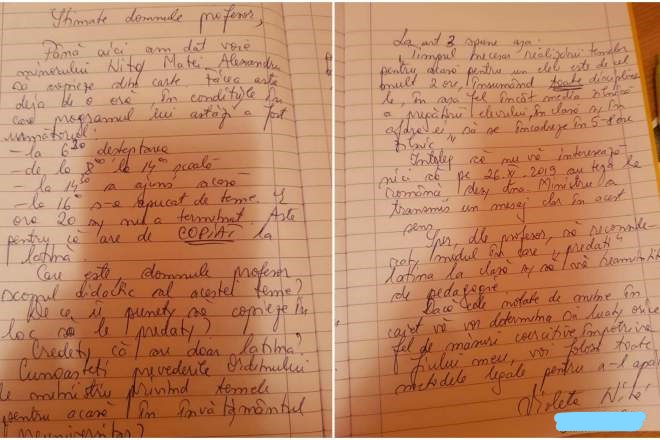 Stimate domnule profesor,
Până aici am dat voie
minorului Niță Matei Alexandru
să copieze din carte. Făcea asta
deja de o oră în condițiile în
care programul lui astăzi a fost
următorul:
- la 6:30 deșteptarea
- de la 8:00 la 14:00 școală
- la 14:30 a ajuns acasă
- la 16:00 s-a apucat de teme. E
ora 20 și nu a terminat. Asta
pentru că are de COPIAT la
latină.
Care este, domnule profesor
scopul didactic al acestei teme?
De ce îi puneți să copieze în
loc să le predați?
Credeți că are doar latina?
Cunoașteți prevederile Ordinului
de ministru privind temele
pentru acasă în învățământul
preuniversitar?
La art 3 spune așa:
"Timpul necesar realizării temelor
pentru acasă pentru un elev este de cel
mult 2 ore, însumând toate discipline-
le, în așa fel încât media zilnică
a pregătirii elevului, în clasă și în
afara ei, să se încadreze în 5-8 ore
zilnic".
Înțeleg că nu vă interesează
nici că pe 26.XI.2019 au teză la
română deși dna. Ministru a
transmis un mesaj clar în acest
sens.
Sper, dle profesor, să reconside-
rați modul în care "predați"
latina la clasă și să vă reamintiți
de pedagogie.
Dacă cele notate de mine în
caiet vă vor determina să luați orice
fel de măsuri coercitive împotriva
fiului meu, voi folosi toate
metodele legale pentru a-l apăra
Violeta Niță